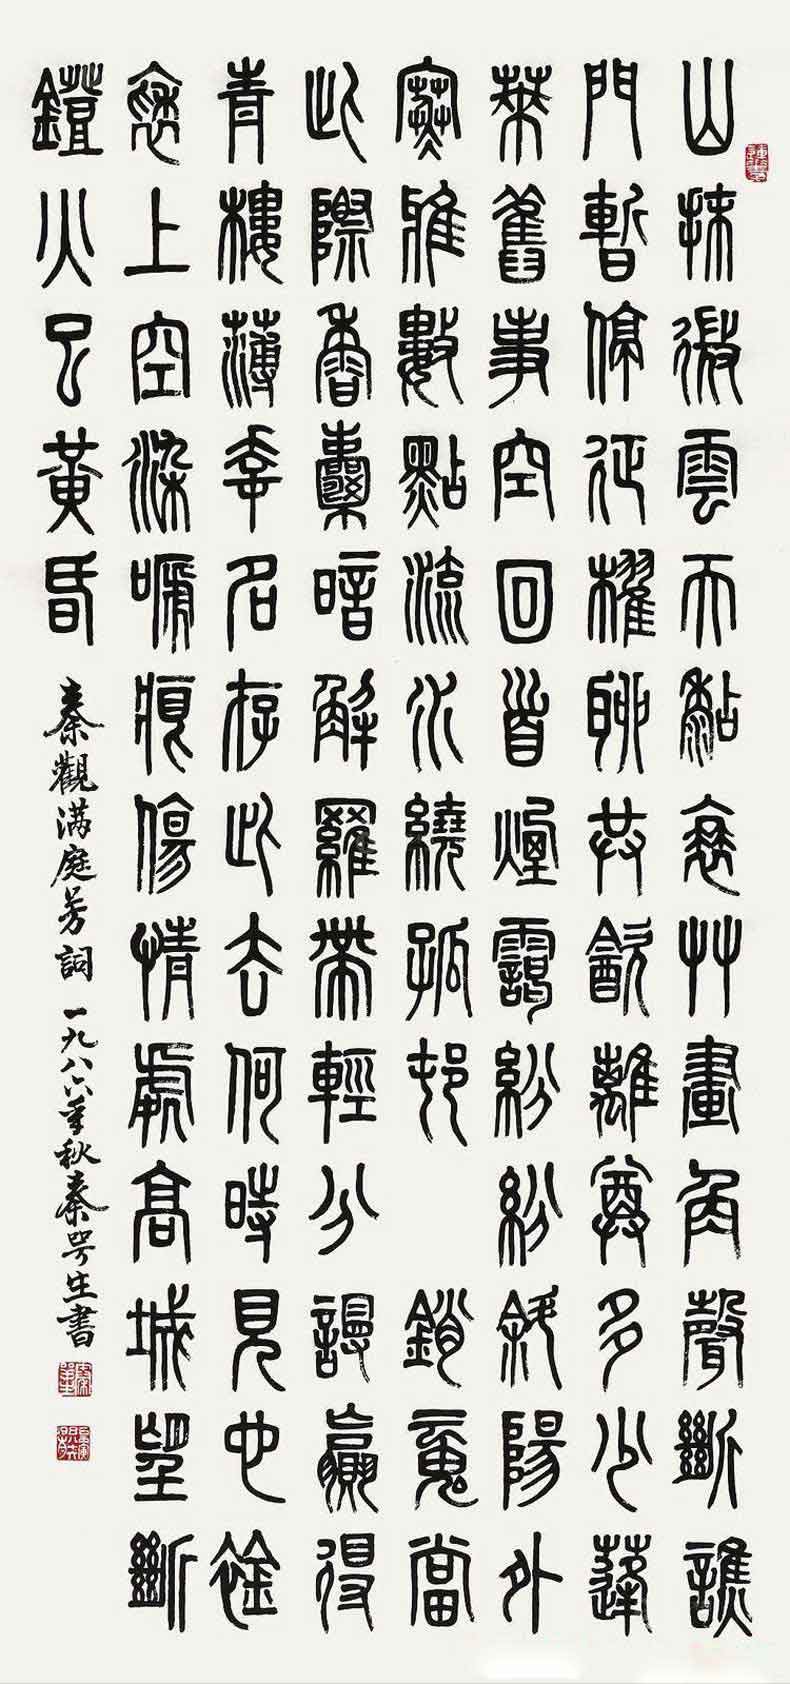 山抹微雲天黏衰艸畫角聲斷譙
門暫停征櫂聊共飲離尊多少蓬
萊舊事空回首煙靄紛紛斜陽外
寒雅數點流水繞孤邨 銷魂當
此際香囊暗解羅帶輕分謾贏得
青樓薄幸名存此去何時見也襟
褎上空染嗁痕傷情處高城望斷
鐙火已黃昏
秦觀滿庭芳詞 一九八六年秋秦咢生書